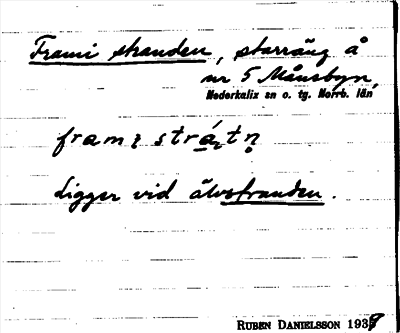 Frami stranden, starräng å
nr 5 Månsbyn,
Nederkalix sn o. tg. Norrb. län
Ligger vid älvstranden.
RUBEN DANIELSSON 1937